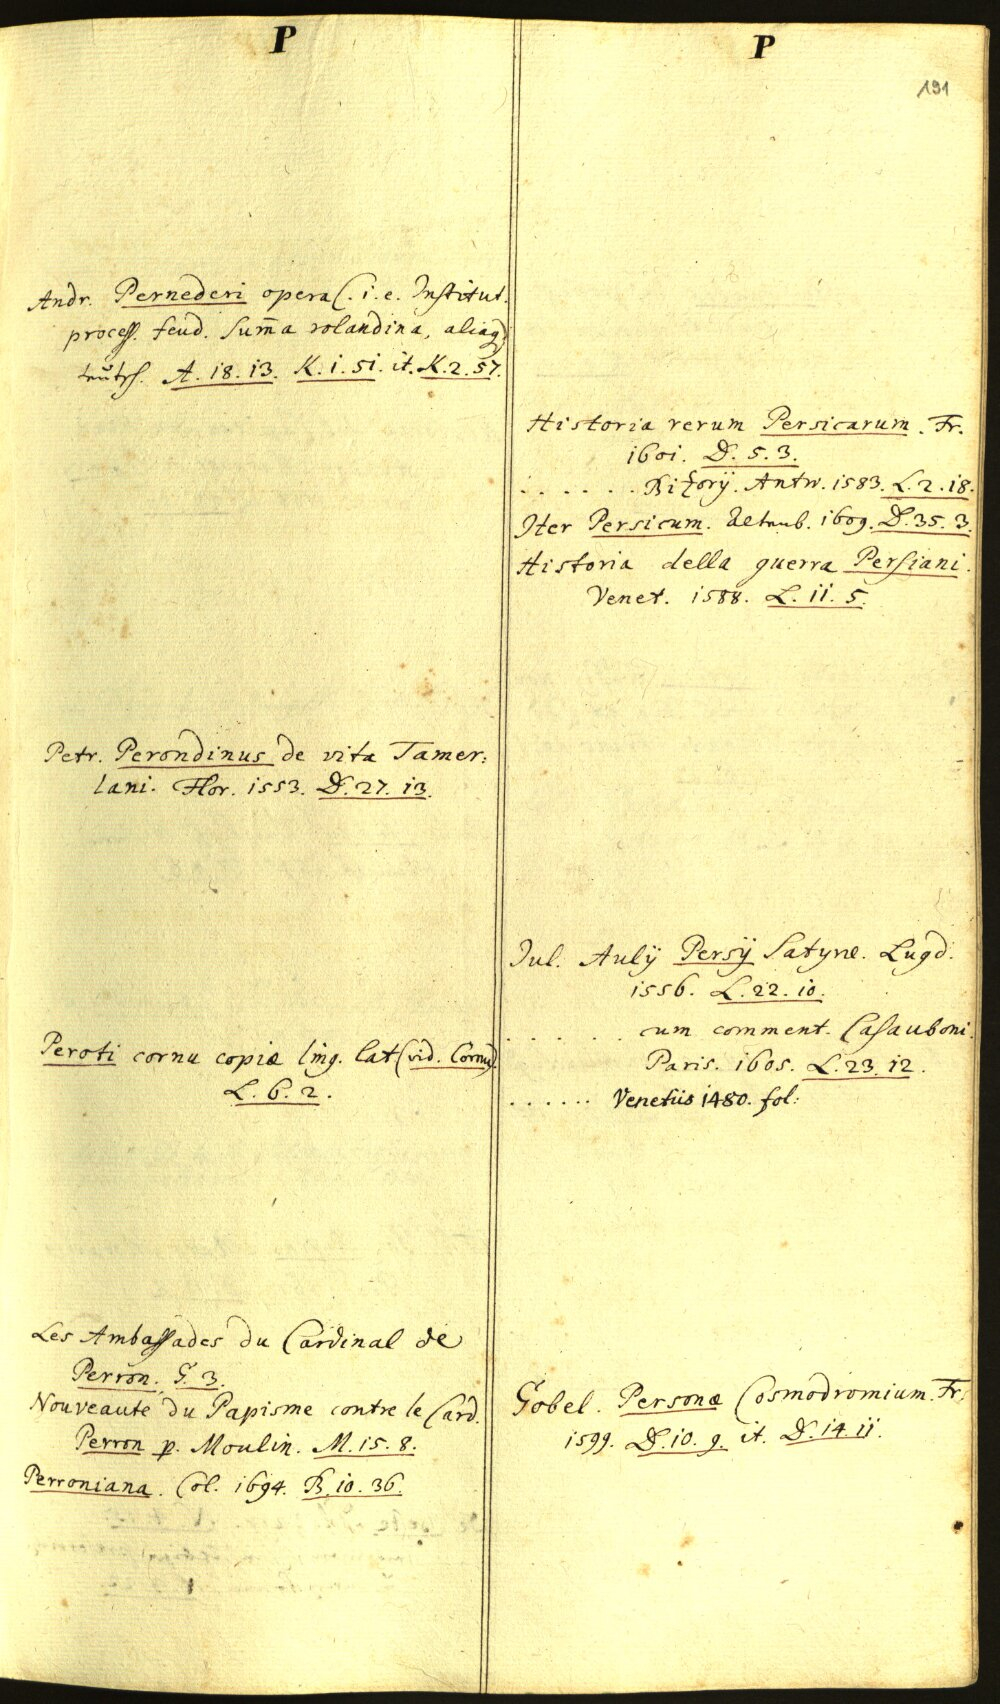 P
Andr. Pernederi opera (. i. e. Institut.
process. feud. Sum̄a rolandina, aliaq₃
teutsch. A. 18. 13. K. 1. 51. it. K. 2. 57.
Petr. Perondinus de vita Tamer:
lani. Flor. 1553. D. 27. 13.
Peroti cornu copiæ ling. lat (vid. Cornu)
L. 6. 2.
Les Ambassades du Cardinal de
Perron. G. 3.
Nouveaute du Papisme contre le Card.
Perron p. Moulin. M. 15. 8.
Perroniana. Col. 1694. B. 10. 36.
P
191
Historia rerum Persicarum. Fr.
1601. D. 5. 3.
. . . . . . Bizorij. Antw. 1583. L. 2. 18.
Iter Persicum. 1609. D. 35. 3.
Historia della guerra Persiani.
Venet. 1588. L. 11. 5.
Jul. Aulij Persij Satyræ. Lugd.
1556. L. 22. 10.
. . . . . . cum comment. Casauboni.
Paris. 1605. L. 23. 12.
. . . . . . Venetiis 1480. fol:
Gobel. Personæ Cosmodromium. Fr:
1599. D. 10. 9. it. D. 14 11.